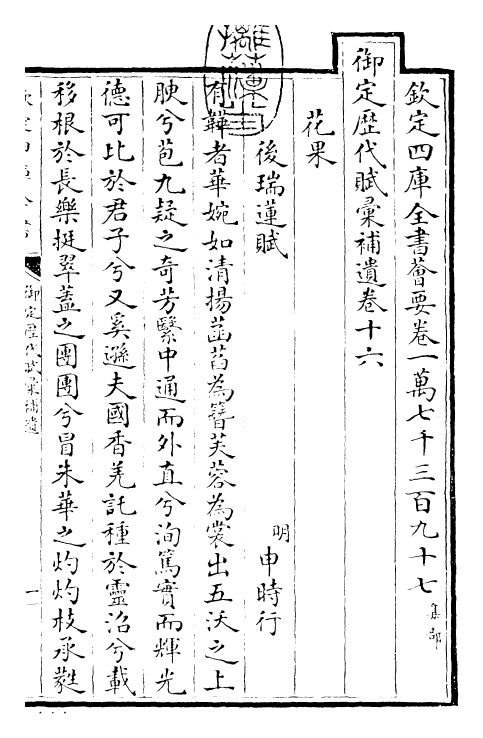 欽定四庫全書薈要卷一萬七千三百九十七 集部
御定歷代賦彙補遺卷十六
花果
後瑞蓮賦 明 申時行
有韡者華婉如清揚菡萏為簪芙蓉為裳出五沃之上
腴兮苞九疑之奇芳繄中通而外直兮洵篤實而輝光
德可比於君子兮又奚遜夫國香羌託種於靈沼兮載
移根於長樂挺翠蓋之團團兮冒朱華之灼灼枝承蕤
御定歷代賦彙補遺
一